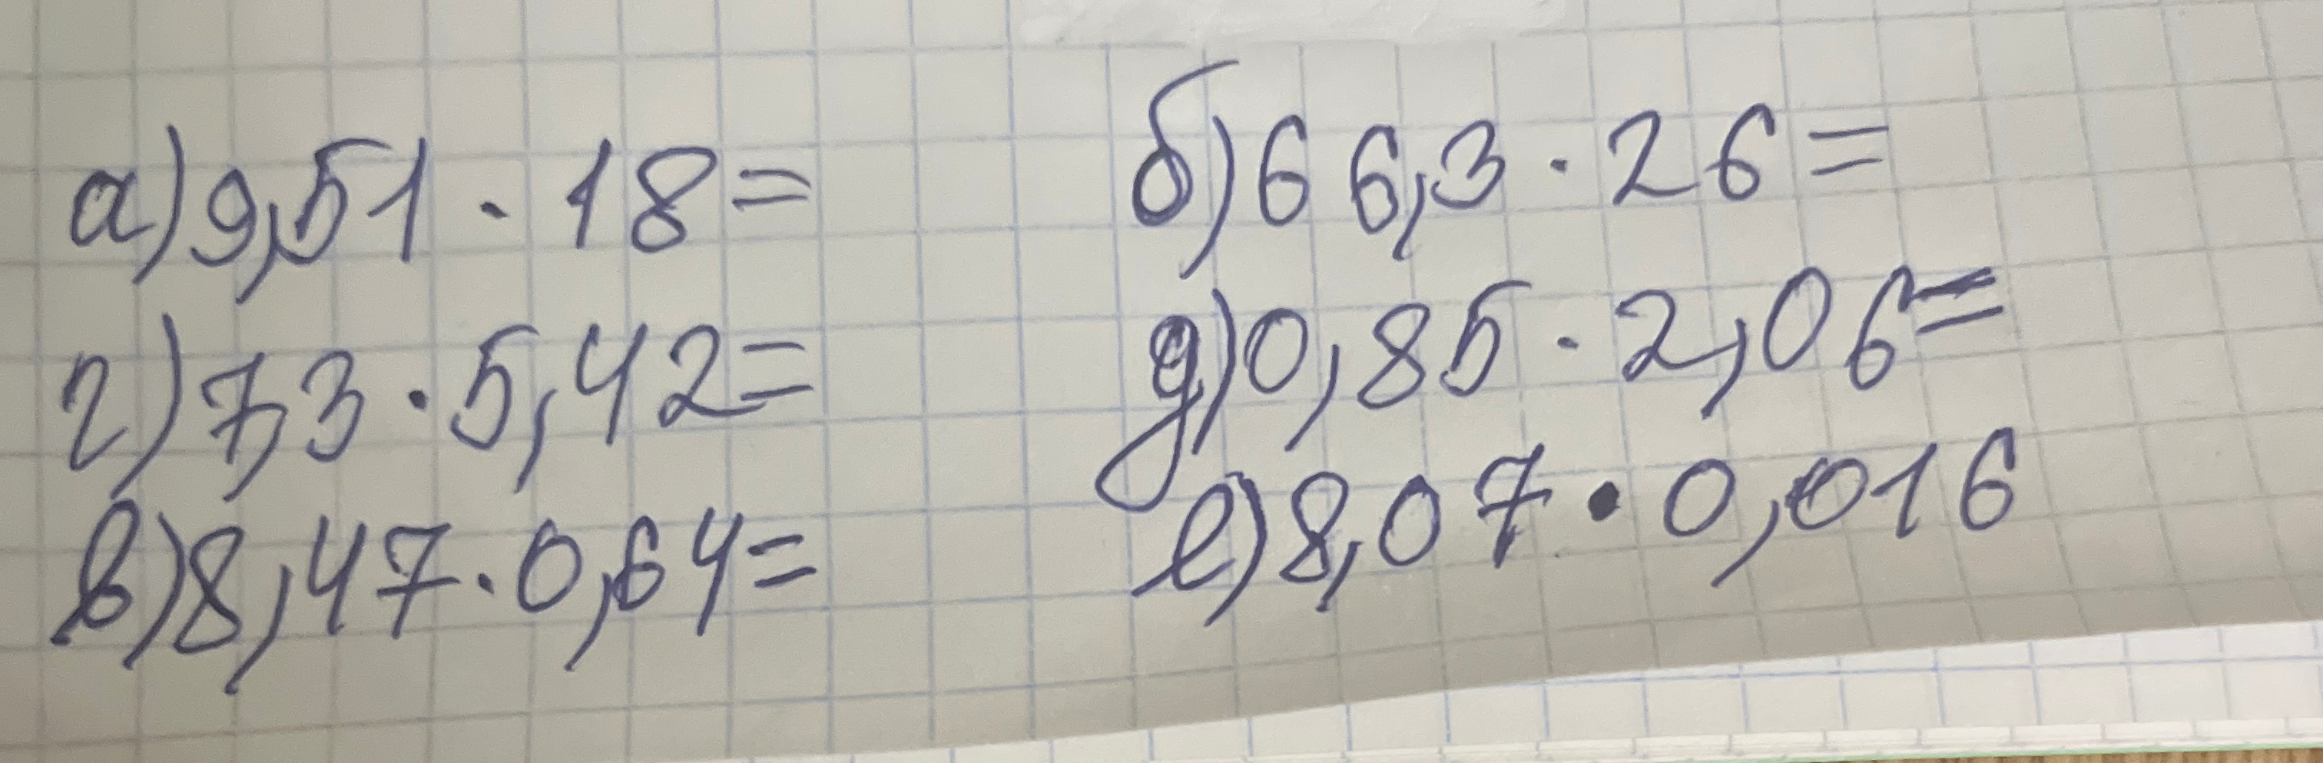 а) 9,51 · 18 =
б) 66,3 · 26 =
г) 7,3 · 5,42 =
д) 0,85 · 2,06 =
в) 8,47 · 0,64 =
е) 8,07 · 0,016